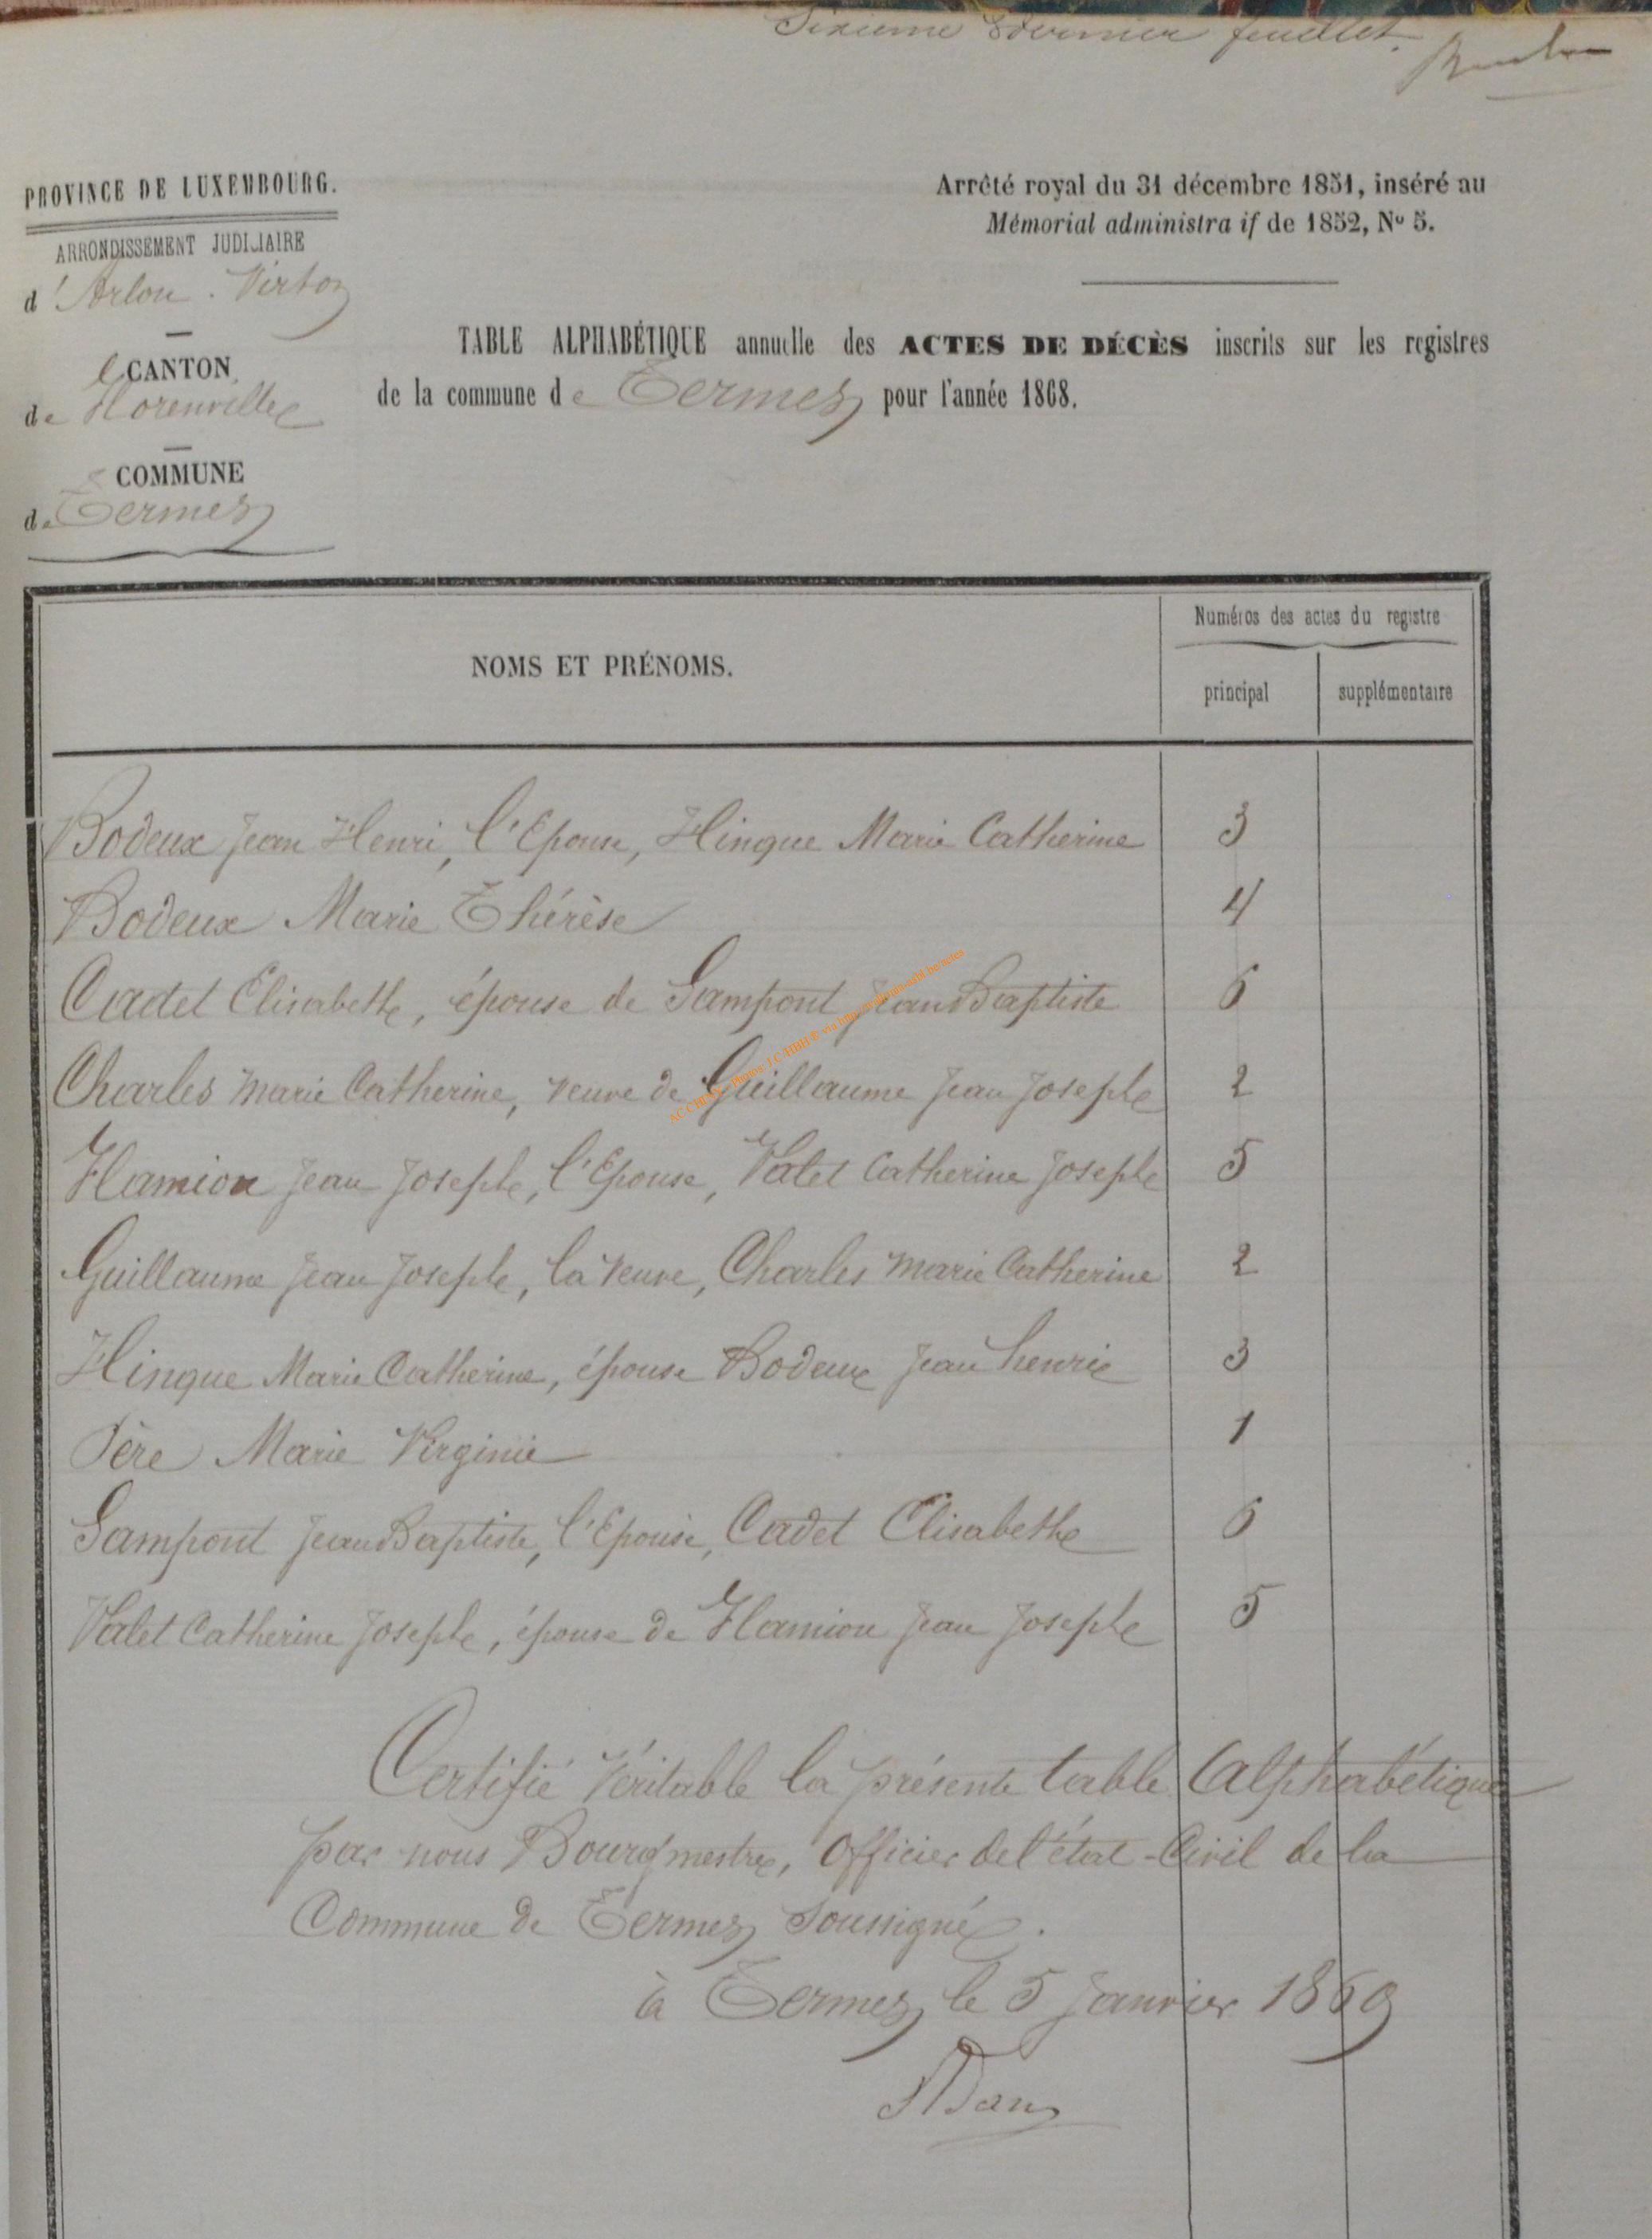 Sixième & dernier feuillet.
PROVINCE DE LUXEMBOURG.
ARRONDISSEMENT JUDICIAIRE
d'Arlon. Virton
CANTON
de Florenville
COMMUNE
de Termes
Arrêté royal du 31 décembre 1851, inséré au
Mémorial administra if de 1852, No 5.
TABLE ALPHABÉTIQUE annuelle des ACTES DE DÉCÈS inscrits sur les registres
de la commune de Termes pour l'année 1868.
NOMS ET PRÉNOMS.
Numéros des actes du registre
principal
supplémentaire
Bodeux Jean Henri, l'Epouse, Hinque Marie Catherine 3
Bodeux Marie Thérèse 4
Cadet Elisabethe, épouse de Sampont Jean Baptiste 6
Charles Marie Catherine, veuve de Guillaume Jean Joseph 2
Hamion Jean Joseph, l'Epouse, Valet Catherine Joseph 5
Guillaume Jean Joseph, la veuve, Charles Marie Catherine 2
Hinque Marie Catherine, épouse Bodeux Jean henri 3
Père Marie Virginie 1
Sampont Jean Baptiste, l'Epouse, Cadet Elisabethe 6
Valet Catherine Joseph, épouse de Hamion Jean Joseph 5
Certifié Véritable la présente table Alphabétique
par nous Bourgmestre, Officier de l'état-Civil de la
Commune de Termes Soussigné.
à Termes, le 5 Janvier 1869
Adam